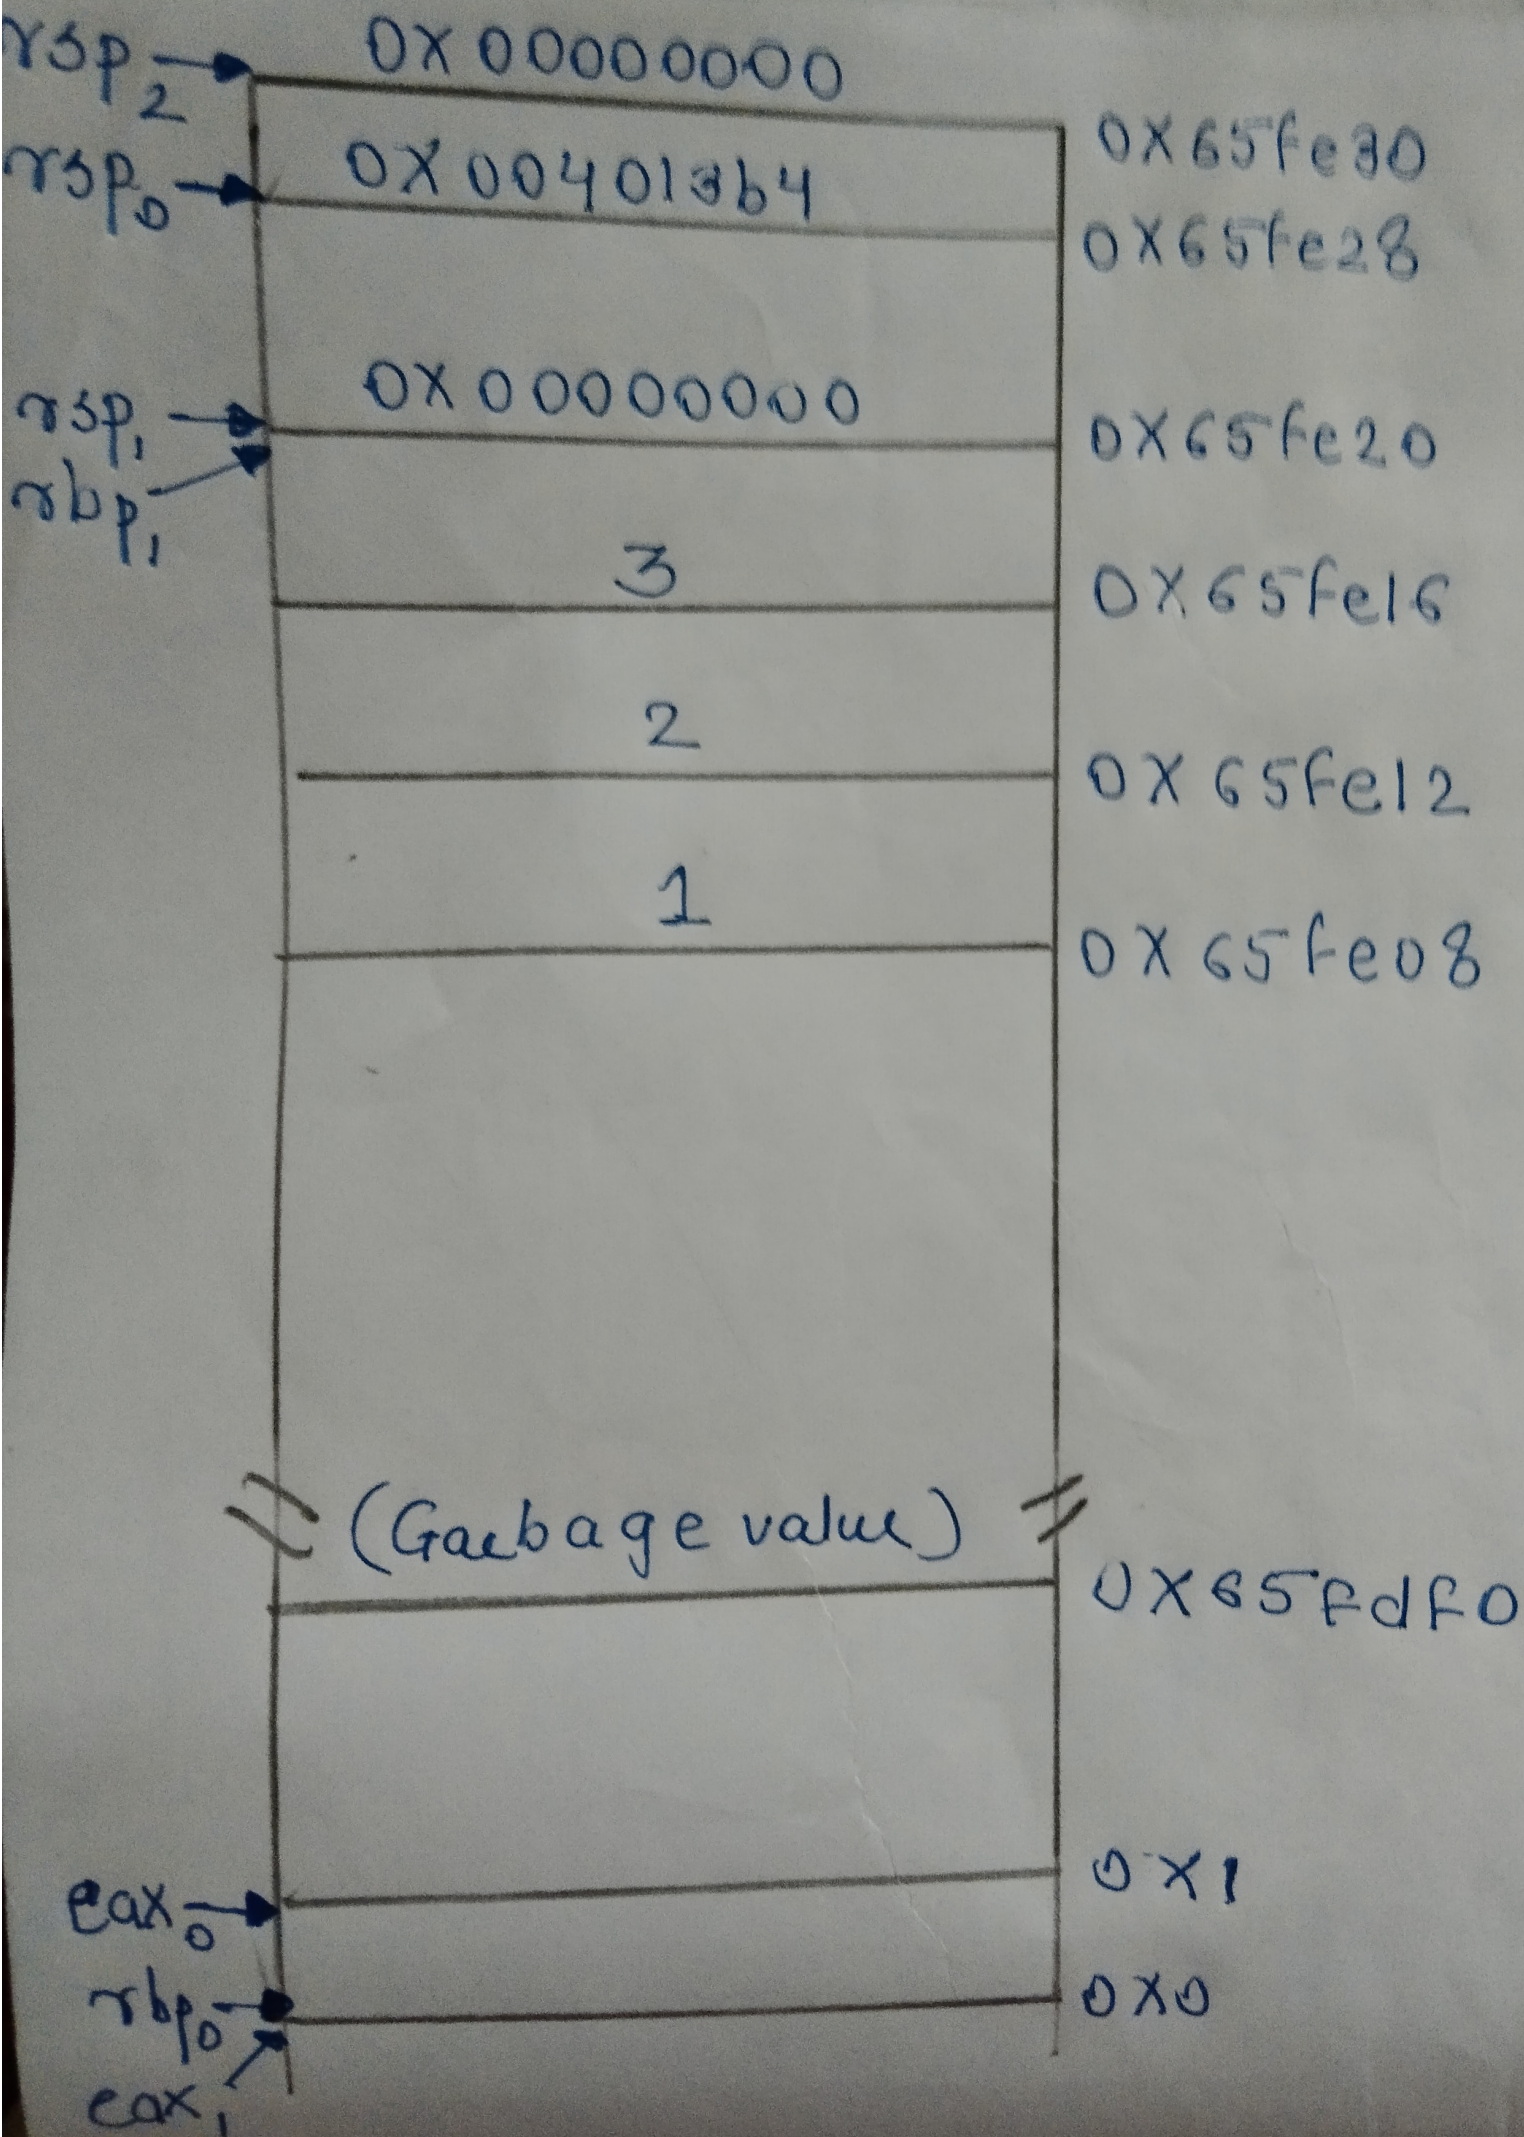 rsp2 0X00000000
0X65fe30
rsp0 0X004013b4
0X65fe28
rsp1 0X00000000
0X65fe20
rbp1
3
0X65fe16
2
0X65fe12
1
0X65fe08
(Garbage value)
0X65fdf0
0X1
eax0
rbp0 0X0
eax1